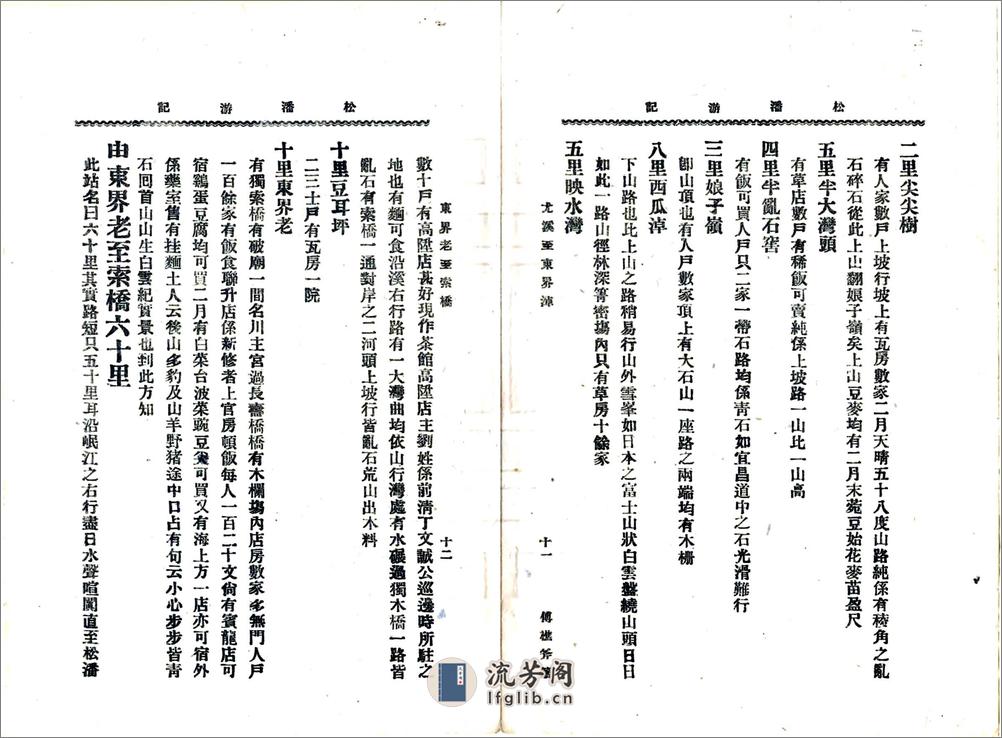 松潘游記
二里尖尖樹
有人家數戶上坡行坡上有瓦房數家二月天晴五十八度山路純係有稜角之亂
石碎石從此上山翻娘子嶺矣上山豆麥均有二月末菀豆始花麥苗盈尺
五里半大灣頭
有草店數戶有稀飯可賣純係上坡路一山比一山高
四里半亂石窖
有飯可買人戶只二家一帶石路均係青石如宜昌道中之石光滑難行
三里娘子嶺
卽山頂也有人戶數家頂上有大石山一座路之兩端均有木柵
八里西瓜淖
下山路也比上山之路稍易行山外雪峯如日本之富士山狀白雲盤繞山頭日日
如此一路山徑林深箐密塲內只有草房十餘家
五里映水灣
尤溪至東界淖
十一
傅樵斧
松潘游記
東界老至索橋
十二
數十戶有高陞店甚好現作茶館高陞店主劉姓係前淸丁文誠公巡邊時所駐之
地也有麵可食沿溪右行路有一大灣曲均依山行灣處有水碾過獨木橋一路皆
亂石有索橋一通對岸之二河頭上坡行皆亂石荒山出木料
十里豆耳坪
二三十戶有瓦房一院
十里東界老
有獨索橋有破廟一間名川主宮過長壽橋橋有木欄塲內店房數家多無門人戶
一百餘家有飯食聯升店係新修者上官房頓飯每人一百二十文尙有賓龍店可
宿鷄蛋豆腐均可買二月有白菜台波菜豌豆尖可買又有海上方一店亦可宿外
係藥室舊有挂麵土人云後山多豹及山羊野猪途中口占有句云小心步步皆靑
石囘首山山生白雲紀實景也到此方知
由東界老至索橋六十里
此站名曰六十里其實路短只五十里耳沿岷江之右行盡日水聲喧闐直至松潘
流芳阁
lfglib.cn